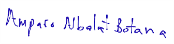 Amparo Nbalat Botana